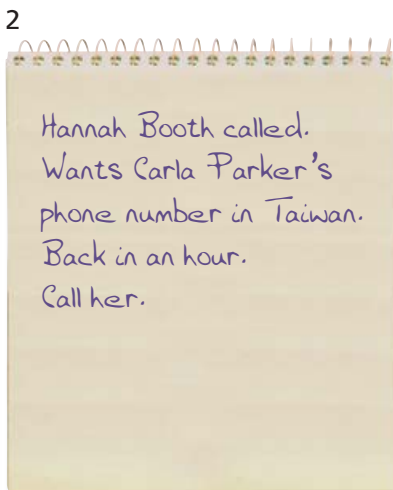 2
Hannah Booth called.
Wants Carla Parker's
phone number in Taiwan.
Back in an hour.
Call her.